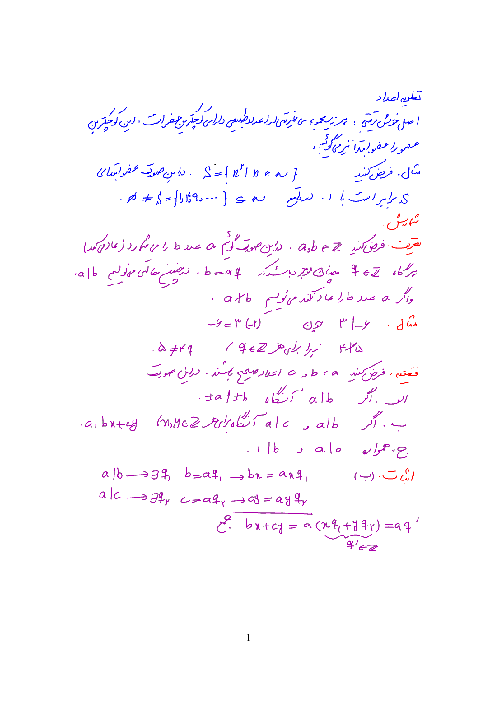 تئوری اعداد
اصل خوش ترتیبی : هر زیرمجموعه‌ی غیرتهی از اعداد طبیعی دارای کوچکترین عضو است . این کوچکترین
عضو را عضو ابتدا نیز می‌گوئیم .
مثال . فرض کنید S = {n² | n ∈ ℕ} . در این صورت عضو ابتدای
S برابر است با ۱ . در واقع ∅ ≠ S = {۱, ۴, ۹, ...} ⊆ ℕ .
شمارش .
تعریف . فرض کنید a, b ∈ Z . در این صورت گوئیم a عدد b را می‌شمارد (عاد می‌کند)
هرگاه q ∈ Z چنان موجود باشد که b = aq . در چنین حالتی می‌نویسیم a|b .
و اگر a عدد b را عاد نکند می‌نویسیم a∤b .
مثال . ۳|-۶ چون -۶ = ۳(-۲)
۴∤۵ زیرا برای هر q ∈ Z , ۵ ≠ ۴q .
قضیه . فرض کنید a , b , c اعداد صحیح باشند . در این صورت
الف . اگر a|b آنگاه ±a|±b .
ب . اگر a|b و a|c آنگاه برای هر x, y ∈ Z ، a|bx+cy .
ج . همواره a|0 و 1|b .
اثبات . (ب) a|b → ∃q₁ b = aq₁ → bx = axq₁
a|c → ∃q₂ c = aq₂ → cy = ayq₂
جمع bx + cy = a(xq₁ + yq₂) = aq'
q' ∈ Z
1